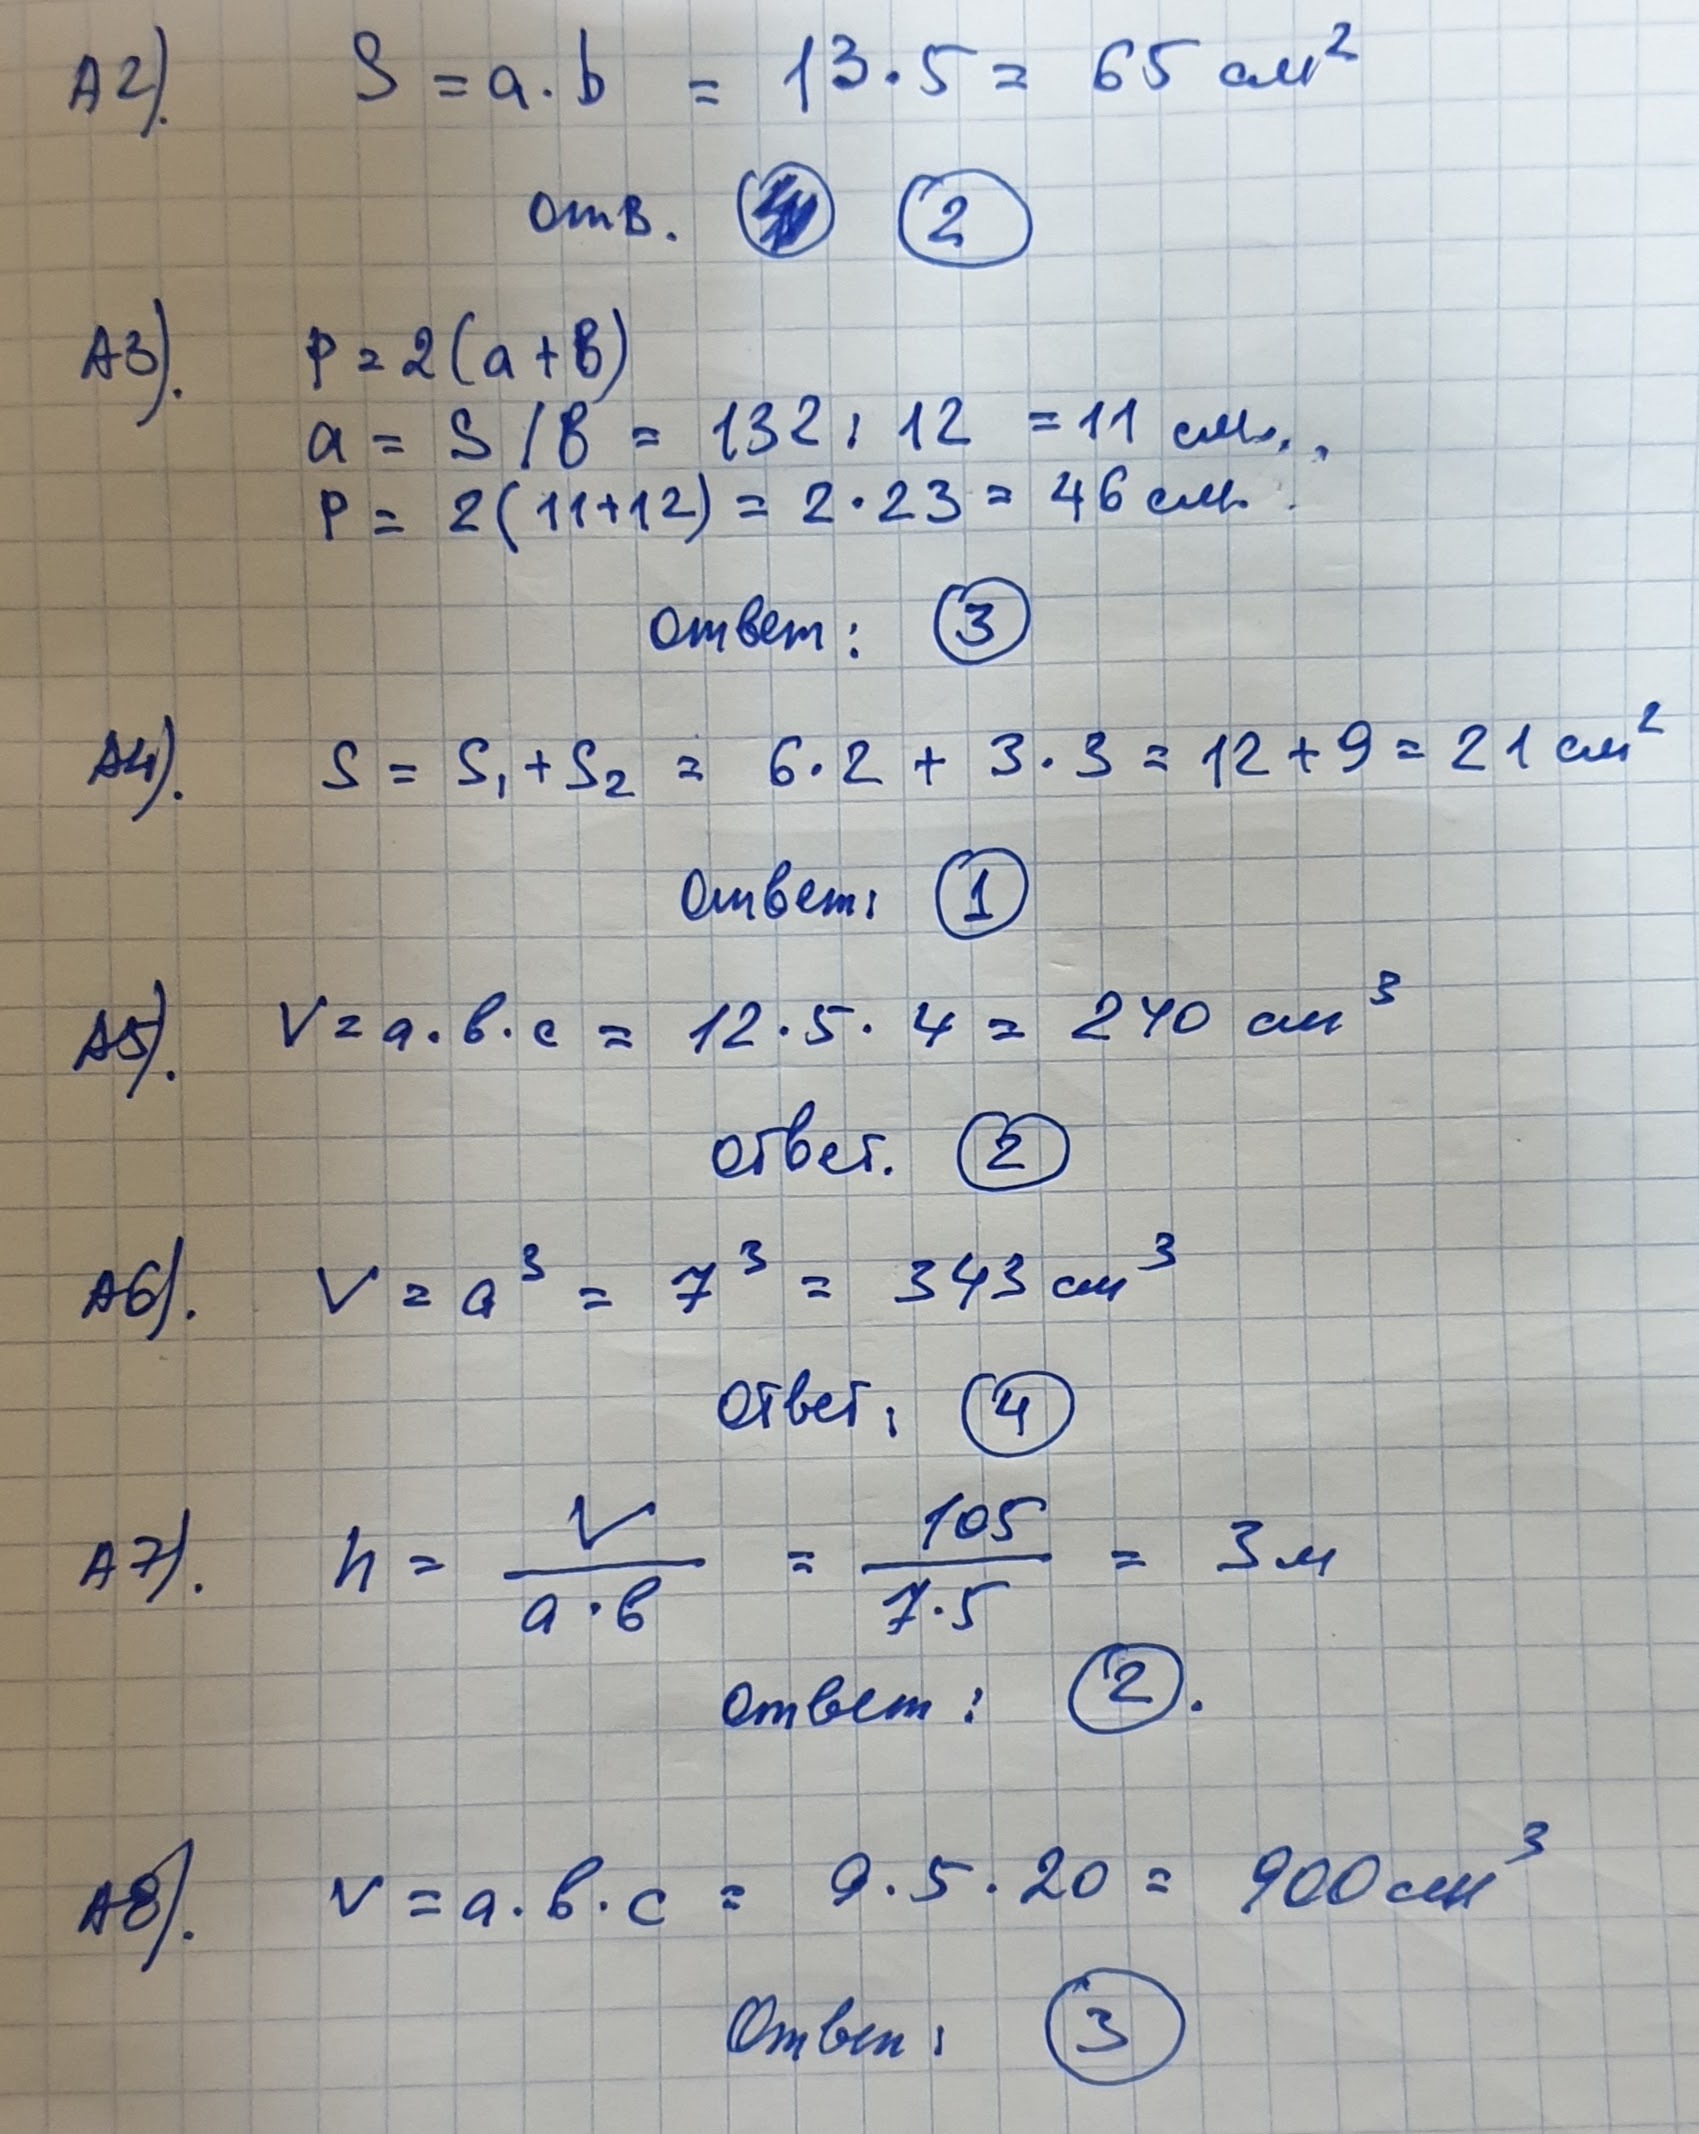 А2). S = a · b = 13 · 5 = 65 см²
отв. 2
А3). P = 2(a + b)
a = S / b = 132 : 12 = 11 см.,
P = 2(11+12) = 2 · 23 = 46 см.
ответ: 3
А4). S = S₁ + S₂ = 6 · 2 + 3 · 3 = 12 + 9 = 21 см²
ответ: 1
А5). V = a · b · c = 12 · 5 · 4 = 240 см³
ответ. 2
А6). V = a³ = 7³ = 343 см³
ответ: 4
А7). h = V / a · b = 105 / 7 · 5 = 3 м
ответ: 2.
А8). V = a · b · c = 9 · 5 · 20 = 900 см³
Ответ: 3